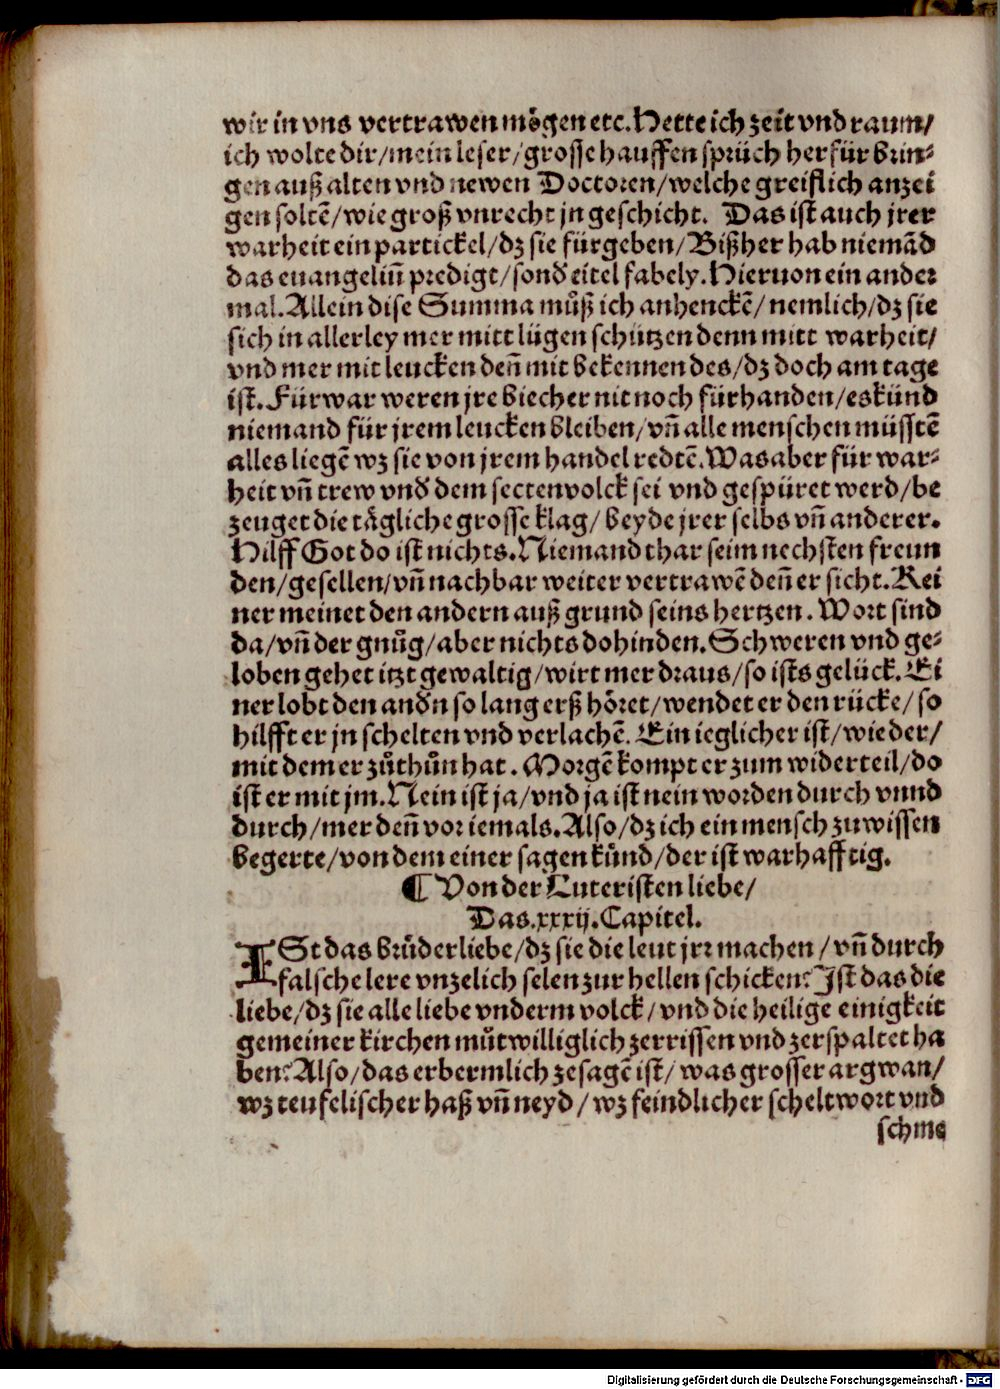 wir in vns vertrawen mögen etc. Hette ich zeit vnd raum/
ich wolte dir/mein leser/grosse hauffen sprüch herfür brin⸗
gen auß alten vnd newen Doctoren/welche greiflich anzei
gen soltē/wie groß vnrecht jn geschicht. Das ist auch jrer
warheit ein partickel/dz sie fürgeben/Bißher hab niemād
das euangeliū predigt/sonď eitel fabely. Hieruon ein ander
mal. Allein dise Summa můß ich anhenckē/nemlich/dz sie
sich in allerley mer mitt lügen schützen denn mitt warheit/
vnd mer mit leucken deñ mit bekennen des/dz doch am tage
ist. Fürwar weren jre biecher nit noch fürhanden/es künd
niemand für jrem leucken bleiben/vñ alle menschen müsstē
alles liegē wz sie von jrem handel redtē. Was aber für war⸗
heit vñ trew vnď dem sectenvolck sei vnd gespüret werd/be
zeuget die tägliche grosse klag/beyde jrer selbs vñ anderer.
Hilff Got do ist nichts. Niemand thar seim nechsten freun
den/gesellen/vñ nachbar weiter vertrawē deñ er sicht. Kei
ner meinet den andern auß grund seins hertzen. Wort sind
da/vñ der gnůg/aber nichts dohinden. Schweren vnd ge⸗
loben gehet itzt gewaltig/wirt mer draus/so ists gelück. Ei
ner lobt den anďn so lang erß höret/wendet er den rücke/so
hilfft er jn schelten vnd verlachē. Ein ieglicher ist/wie der/
mit dem er zůthůn hat. Morgē kompt er zum widerteil/do
ist er mit jm. Nein ist ja/vnd ja ist nein worden durch vnnd
durch/mer deñ vor iemals. Also/dz ich ein mensch zu wissen
begerte/von dem einer sagen künd/der ist warhafftig.
¶ Von der Luteristen liebe/
Das.xxxij.Capitel.
ISt das brůderliebe/dz sie die leut jrr machen/vñ durch
falsche lere vnzelich selen zur hellen schicken? Ist das die
liebe/dz sie alle liebe vnderm volck/vnd die heilige einigkeit
gemeiner kirchen můtwilliglich zerrissen vnd zerspaltet ha
ben? Also/das erbermlich zesagē ist/was grosser argwan/
wz teufelischer haß vñ neyd/wz feindlicher scheltwort vnd
schme
Digitalisierung gefördert durch die Deutsche Forschungsgemeinschaft - DFG